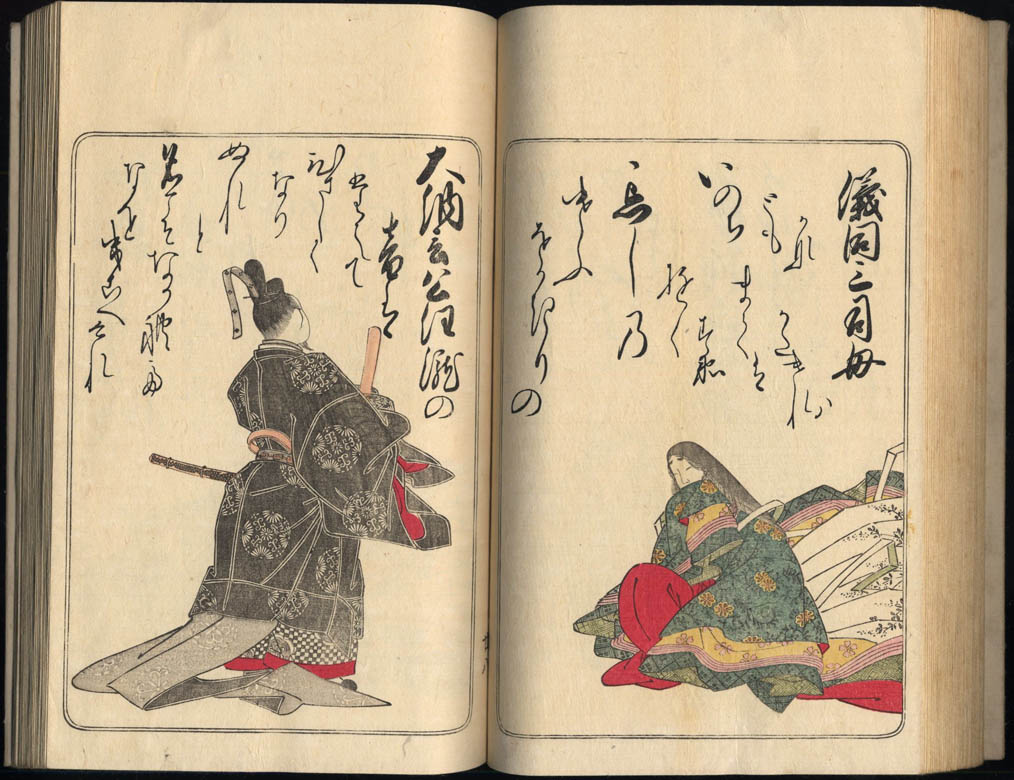 儀同三司母
忘し乃
ゆく
すゑ
まては
かたけれハ
けふ
をかきりの
いのち
とも
かな
大納言公任
瀧の
音は
たえて
久しく
なり
ぬれ
と
名こそなか
れて
なを
聞こえけれ